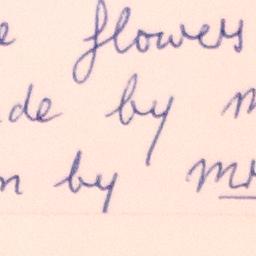 e flowers
de by m
n by mr